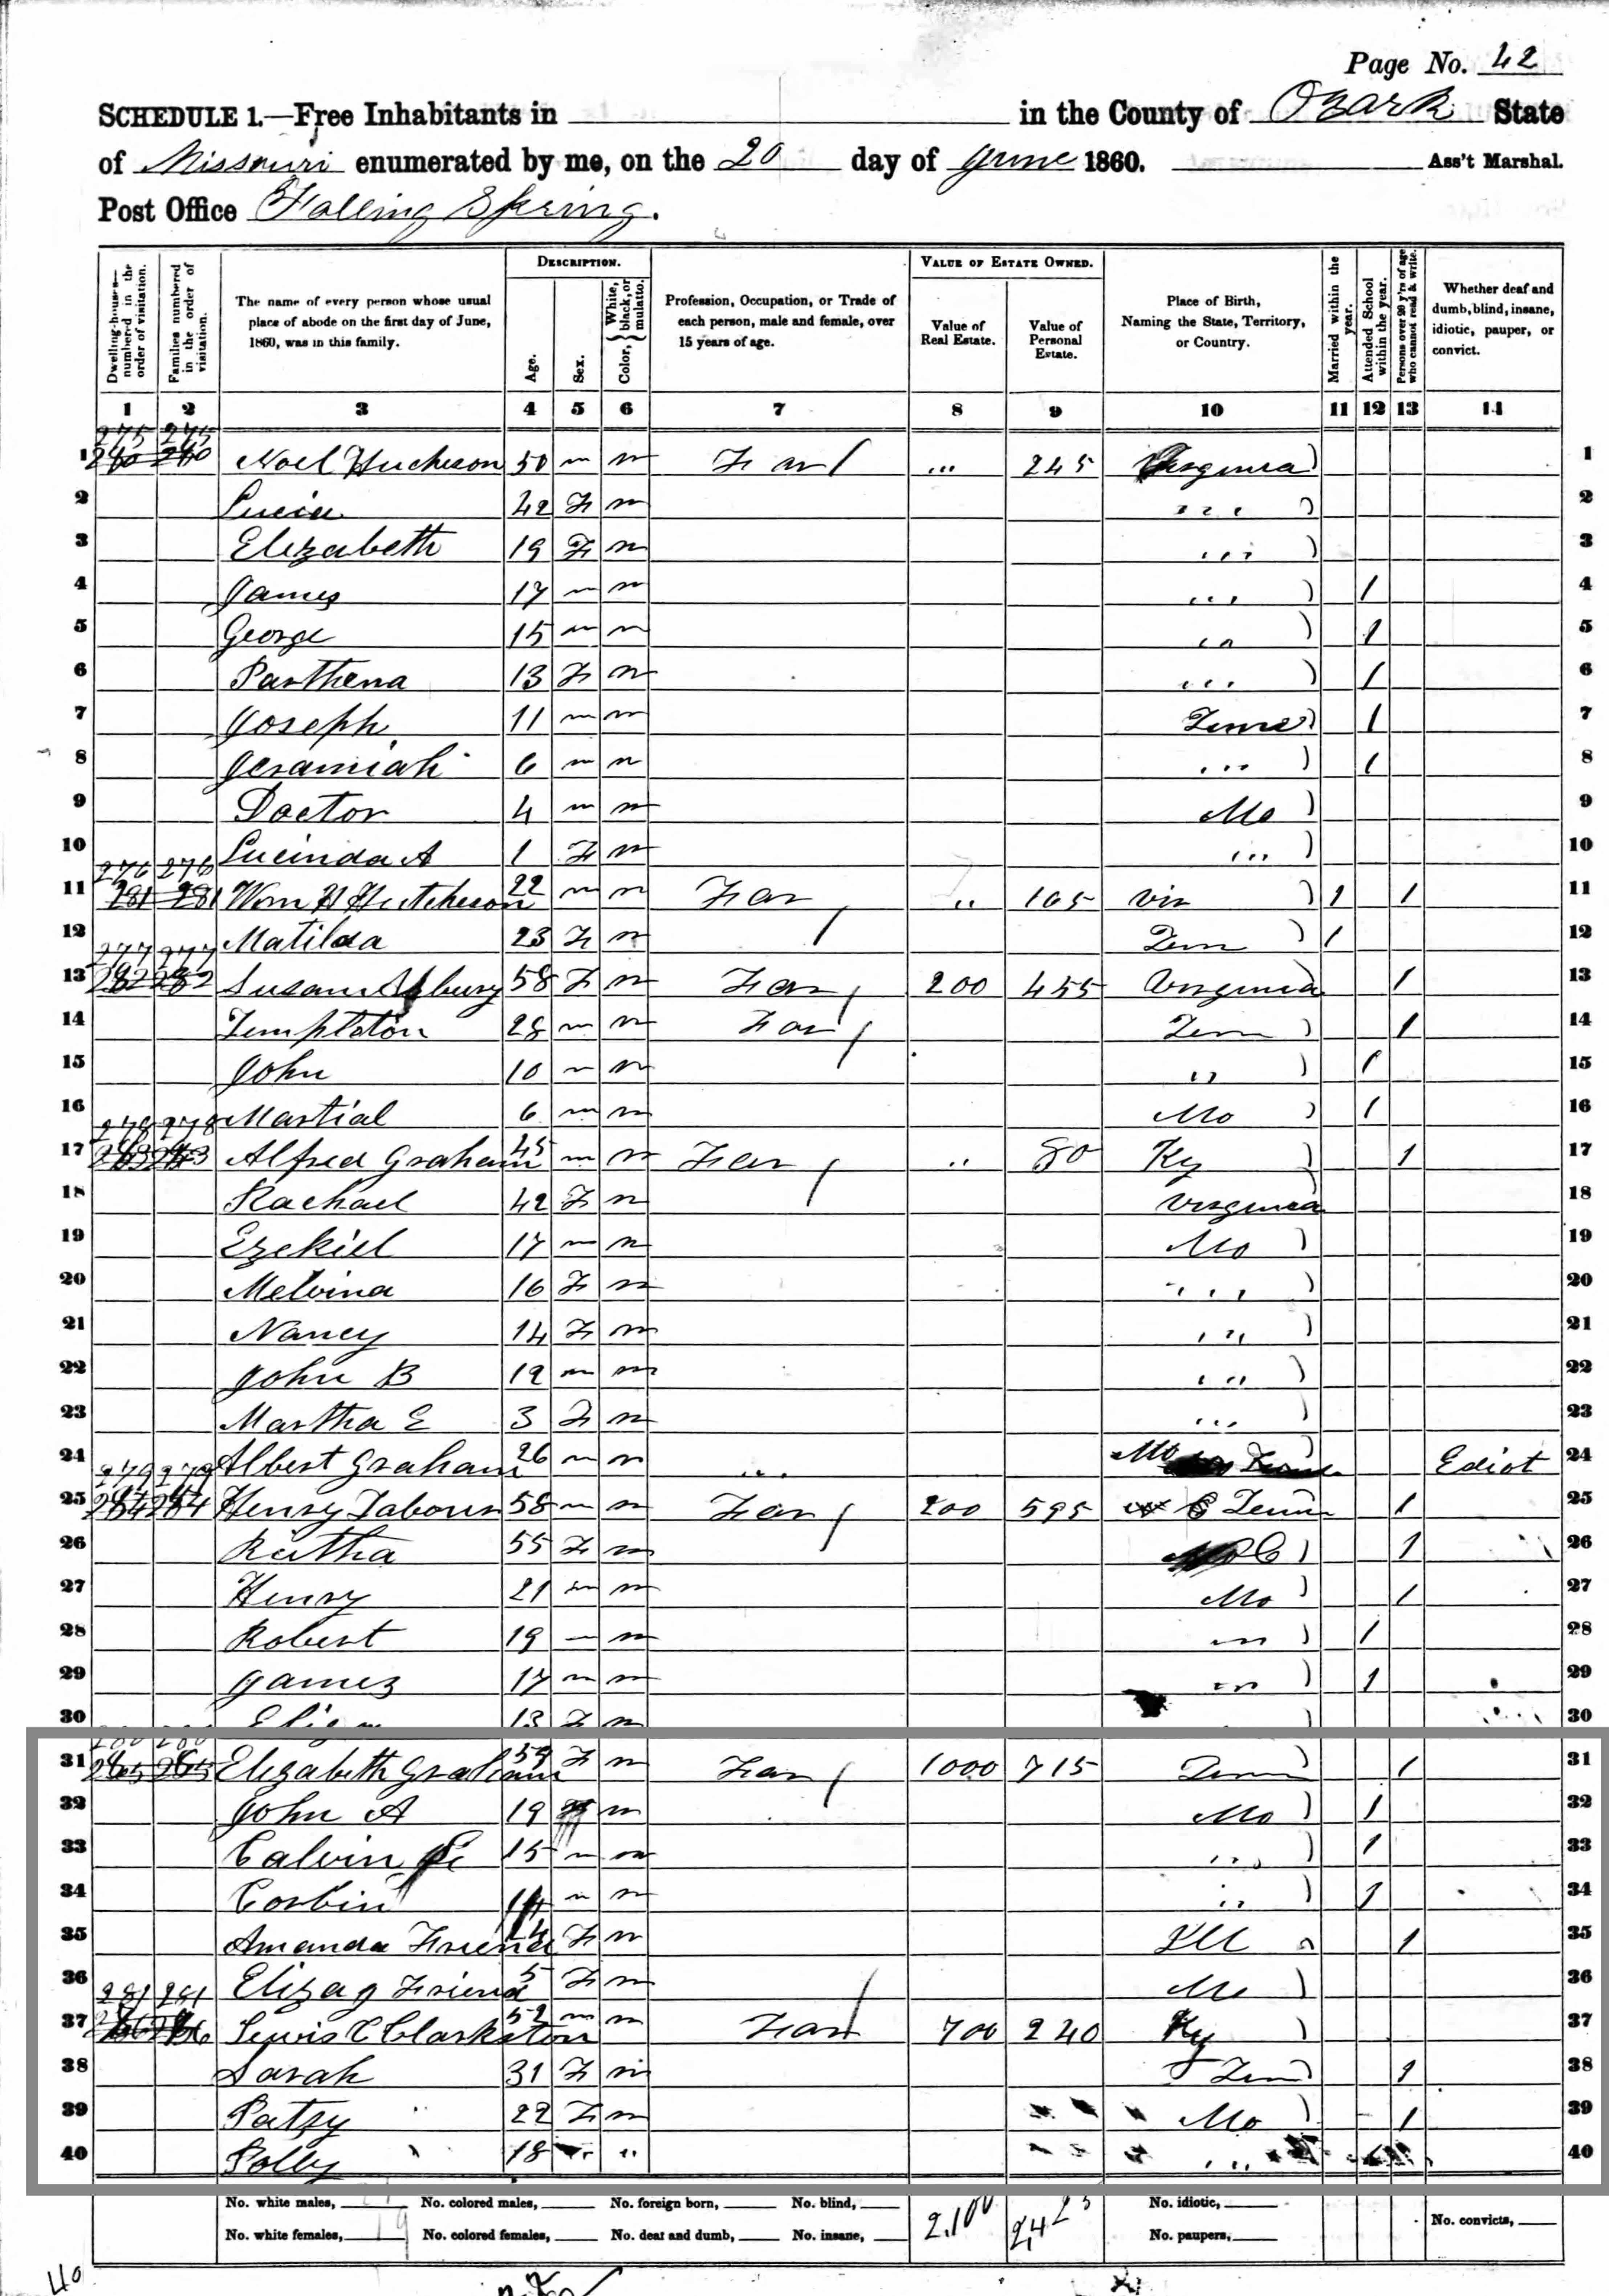 Page No. 42
SCHEDULE 1.—Free Inhabitants in in the County of Ozark State
of Missouri enumerated by me, on the 20 day of June 1860. Ass't Marshal.
Post Office Falling Spring.
Dwelling-houses—numbered in the order of visitation.
Families numbered in the order of visitation.
The name of every person whose usual place of abode on the first day of June, 1860, was in this family.
DESCRIPTION.
Age.
Sex.
Color, { White, black, or mulatto.
Profession, Occupation, or Trade of each person, male and female, over 15 years of age.
VALUE OF ESTATE OWNED.
Value of Real Estate.
Value of Personal Estate.
Place of Birth, Naming the State, Territory, or Country.
Married within the year.
Attended School within the year.
Persons over 20 y'rs of age who cannot read & write.
Whether deaf and dumb, blind, insane, idiotic, pauper, or convict.
1 2 3 4 5 6 7 8 9 10 11 12 13 14
275 275
1 Noel Hucheson 50 m Far ... 245 Virginia 1
2 42 F ... 2
3 Elizabeth 19 F ... 3
4 James 17 m ... 1 4
5 George 15 m 1 5
6 Parthena 13 F ... 1 6
7 Joseph 11 m 1 7
8 Jeramiah 6 m ... 1 8
9 Doctor 4 m Mo 9
10 Lucinda A 1 F ... 10
276 276
11 281 281 Wm H Hutcheson 22 m Far .. 105 Vir 1 1 11
12 Matilda 23 F Tenn 1 12
277 277
13 282 282 Susan 58 F Far 200 455 Virginia 1 13
14 Templeton 28 m Far Tenn 1 14
15 John 10 m " 1 15
16 Martial 6 m Mo 1 16
278 278
17 283 283 Alfred Graham 45 m Far .. 80 Ky 1 17
18 Rachael 42 F Virginia 18
19 Ezekiel 17 m Mo 19
20 Melvina 16 F ... 20
21 Nancy 14 F ... 21
22 John B 12 m ... 22
23 Martha E 3 F ... 23
24 Albert Graham 26 m ... Mo Ediot 24
279 279
25 284 284 Henry Tabour 58 m Far 200 595 Tenn 1 25
26 55 F 1 26
27 Henry 21 m Mo 1 27
28 Robert 19 1 28
29 James 17 m 1 29
30 13 F 30
280 280
31 285 285 Elizabeth Graham 59 F Far 1000 715 Tenn 1 31
32 John A 19 Mo 1 32
33 Calvin 15 m ... 1 33
34 Corbin 14 m .. 1 34
35 Amanda Friend 24 F Ill 1 35
36 Eliza J Friend 5 F Mo 36
281 281
37 Lewis C Clarkston 52 m Far 700 240 Ky 37
38 Sarah 31 F Tenn 1 38
39 Patsy 22 F Mo 1 39
40 Polly 18 .. ... 40
No. white males, No. colored males, No. foreign born, No. blind, No. idiotic,
No. white females, 19 No. colored females, No. deaf and dumb, No. insane, 2,100 2,425 No. paupers, No. convicts,
40